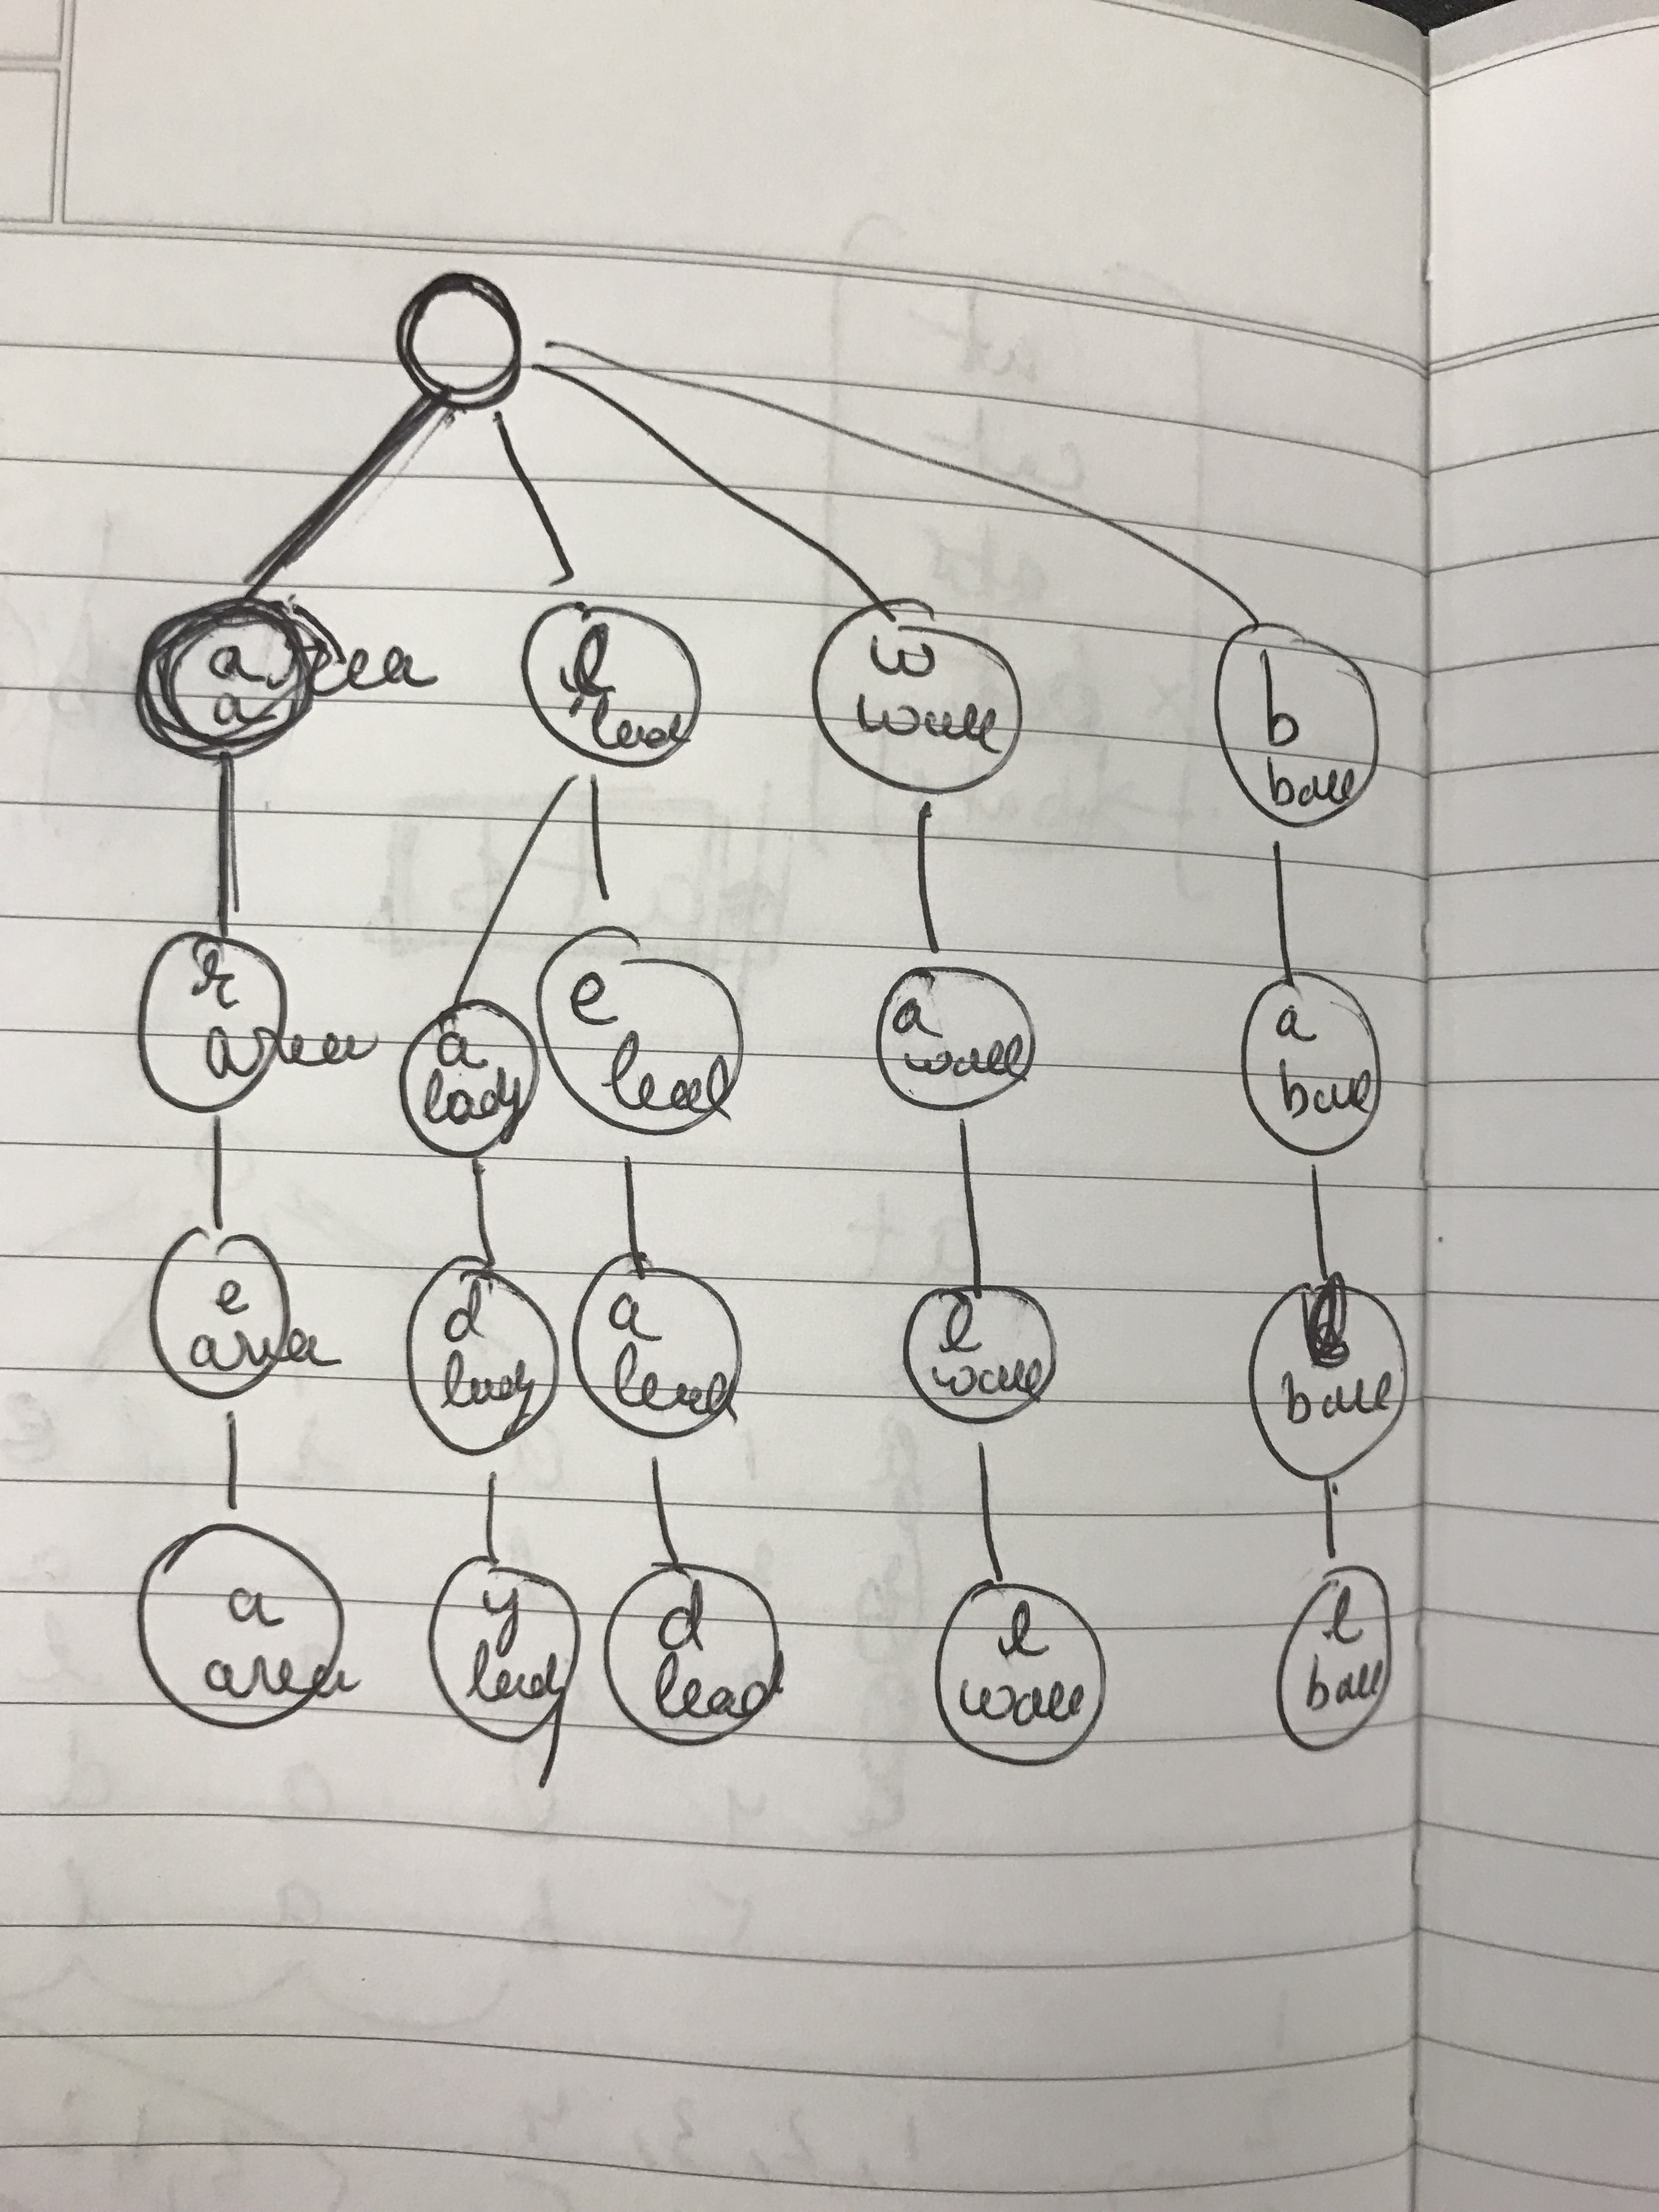 a area
a
l
lead
w
wall
b
ball
r
area
a
lady
e
lead
a
wall
a
ball
e
area
d
lady
a
lead
l
wall
l
ball
a
area
y
lady
d
lead
l
wall
l
ball